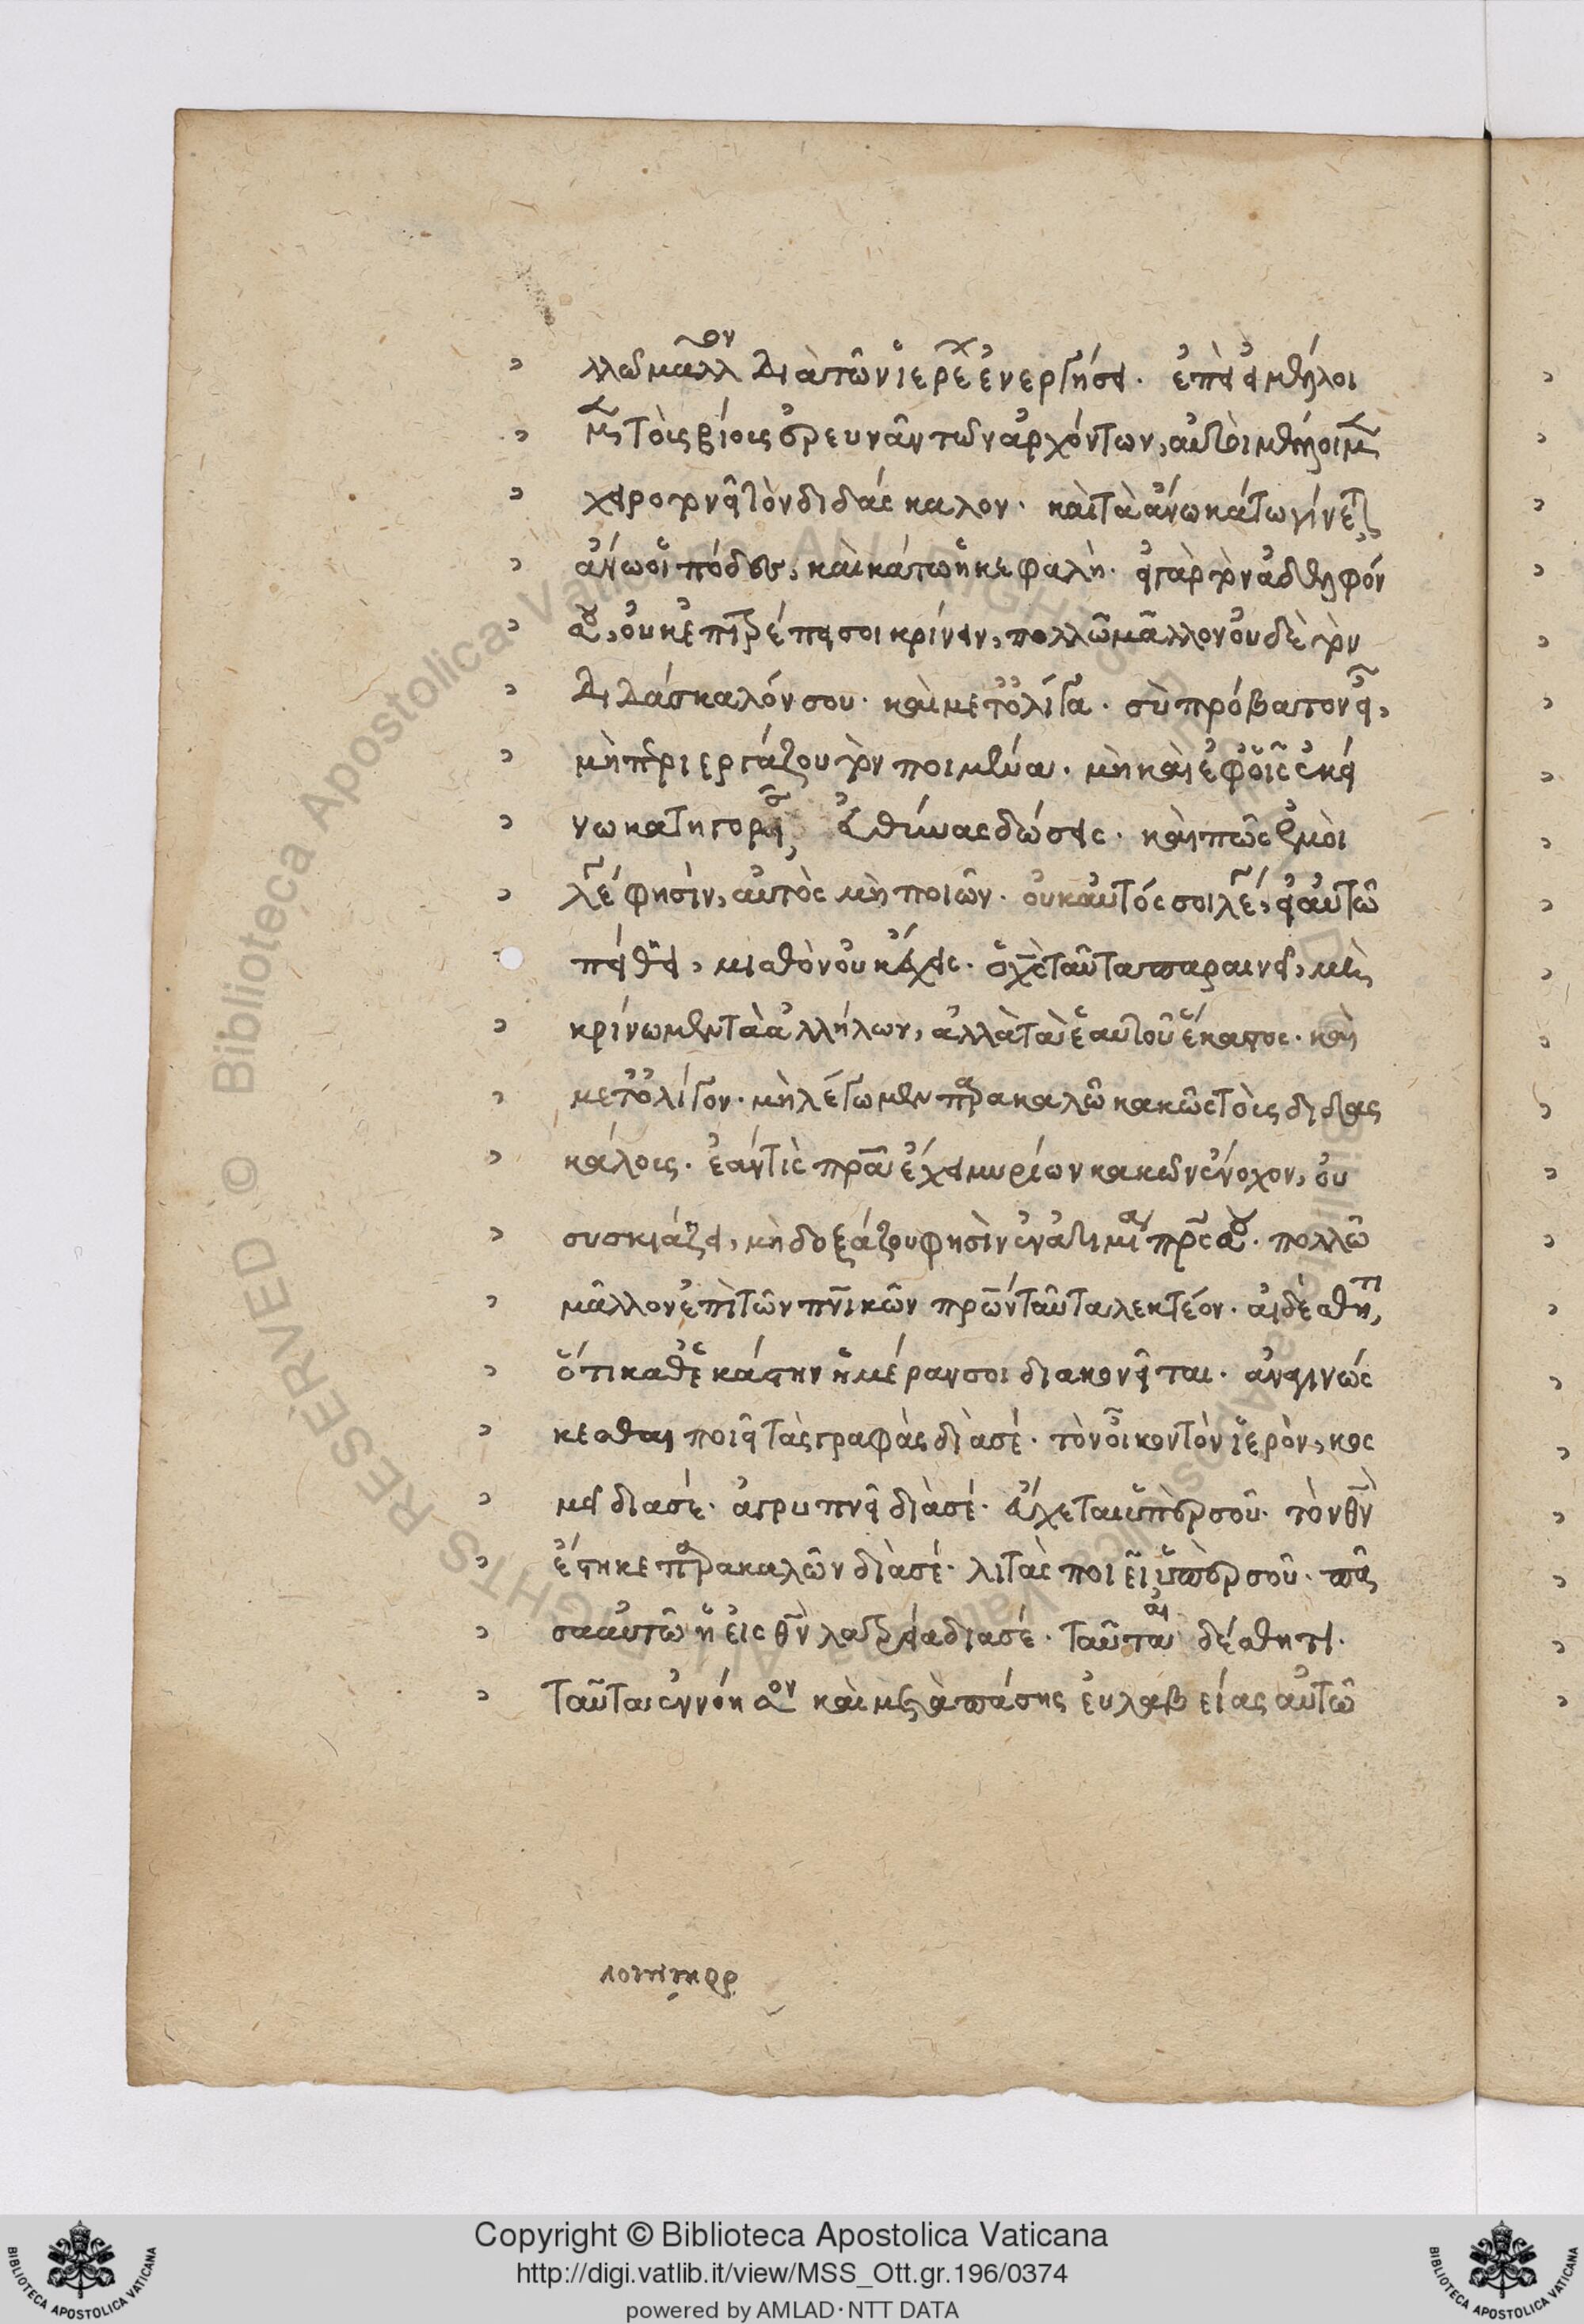 λλῶ μᾶλλον διὰ τῶν ἱερέων ἐνεργήσει. ἐπεὶ εἰ μέλλοι
μεν τοῖς βίοις ἐρευνᾶν τῶν ἀρχόντων, αὐτοὶ μέλλοιμεν
χειροτονεῖν τὸν διδάσκαλον. καὶ τὰ ἄνω κάτω γίνεται
ἄνω οἱ πόδες, καὶ κάτω ἡ κεφαλή. εἰ γὰρ τὸν ἀδελφόν
σου, οὐκ ἐπιτρέπει σοι κρίνειν, πολλῶ μᾶλλον οὐδὲ τὸν
διδάσκαλόν σου. καὶ μετ' ὀλίγα. σὺ πρόβατον εἶ,
μὴ περιεργάζου τὸν ποιμένα. μὴ καὶ ἐφ' οἷς ἐκεί
νω κατηγορεῖς εὐθύνας δώσεις. καὶ πῶς ἐμοὶ
λέγει φησὶν, αὐτὸς μὴ ποιῶν. οὐκ αὐτός σοι λέγει, εἰ αὐτῶ
πείθει, μισθὸν οὐκ ἔχεις. ὁ χς ταῦτα παραινεῖ, μὴ
κρίνωμεν τὰ ἀλλήλων, ἀλλὰ τὰ ἑαυτοῦ ἕκαστος. καὶ
μετ' ὀλίγον. μὴ λέγωμεν παρακαλῶ κακῶς τοὺς διδας
κάλους. ἐάν τις πρα ἔχει μυρίων κακῶν ἔνοχον, οὐ
συσκιάζει, μὴ δοξάζου φησὶν ἐν ἀτιμία πρς σου. πολλῶ
μᾶλλον ἐπὶ τῶν πνικῶν πρων ταῦτα λεκτέον. αἰδέσθητι,
ὅτι καθ' ἑκάστην ἡμέραν σοι διακονεῖται. ἀναγινώς
κεσθαι ποιεῖ τὰς γραφὰς διὰ σέ. τὸν οἶκον τὸν ἱερὸν, κος
μεῖ διὰ σέ. ἀγρυπνεῖ διὰ σέ. εὔχεται ὑπὲρ σοῦ. τὸν θν
ἕστηκε παρακαλῶν διὰ σέ. λιτὰς ποιεῖ ὑπὲρ σοῦ. πᾶ
σα αὐτῶ ἡ εἰς θν λατρεία διὰ σέ. ταῦτα αἰδέσθητι.
ταῦτα ἐννόησον καὶ μετὰ πάσης εὐλαβείας αὐτῶ
Copyright © Biblioteca Apostolica Vaticana
http://digi.vatlib.it/view/MSS_Ott.gr.196/0374
powered by AMLAD·NTT DATA